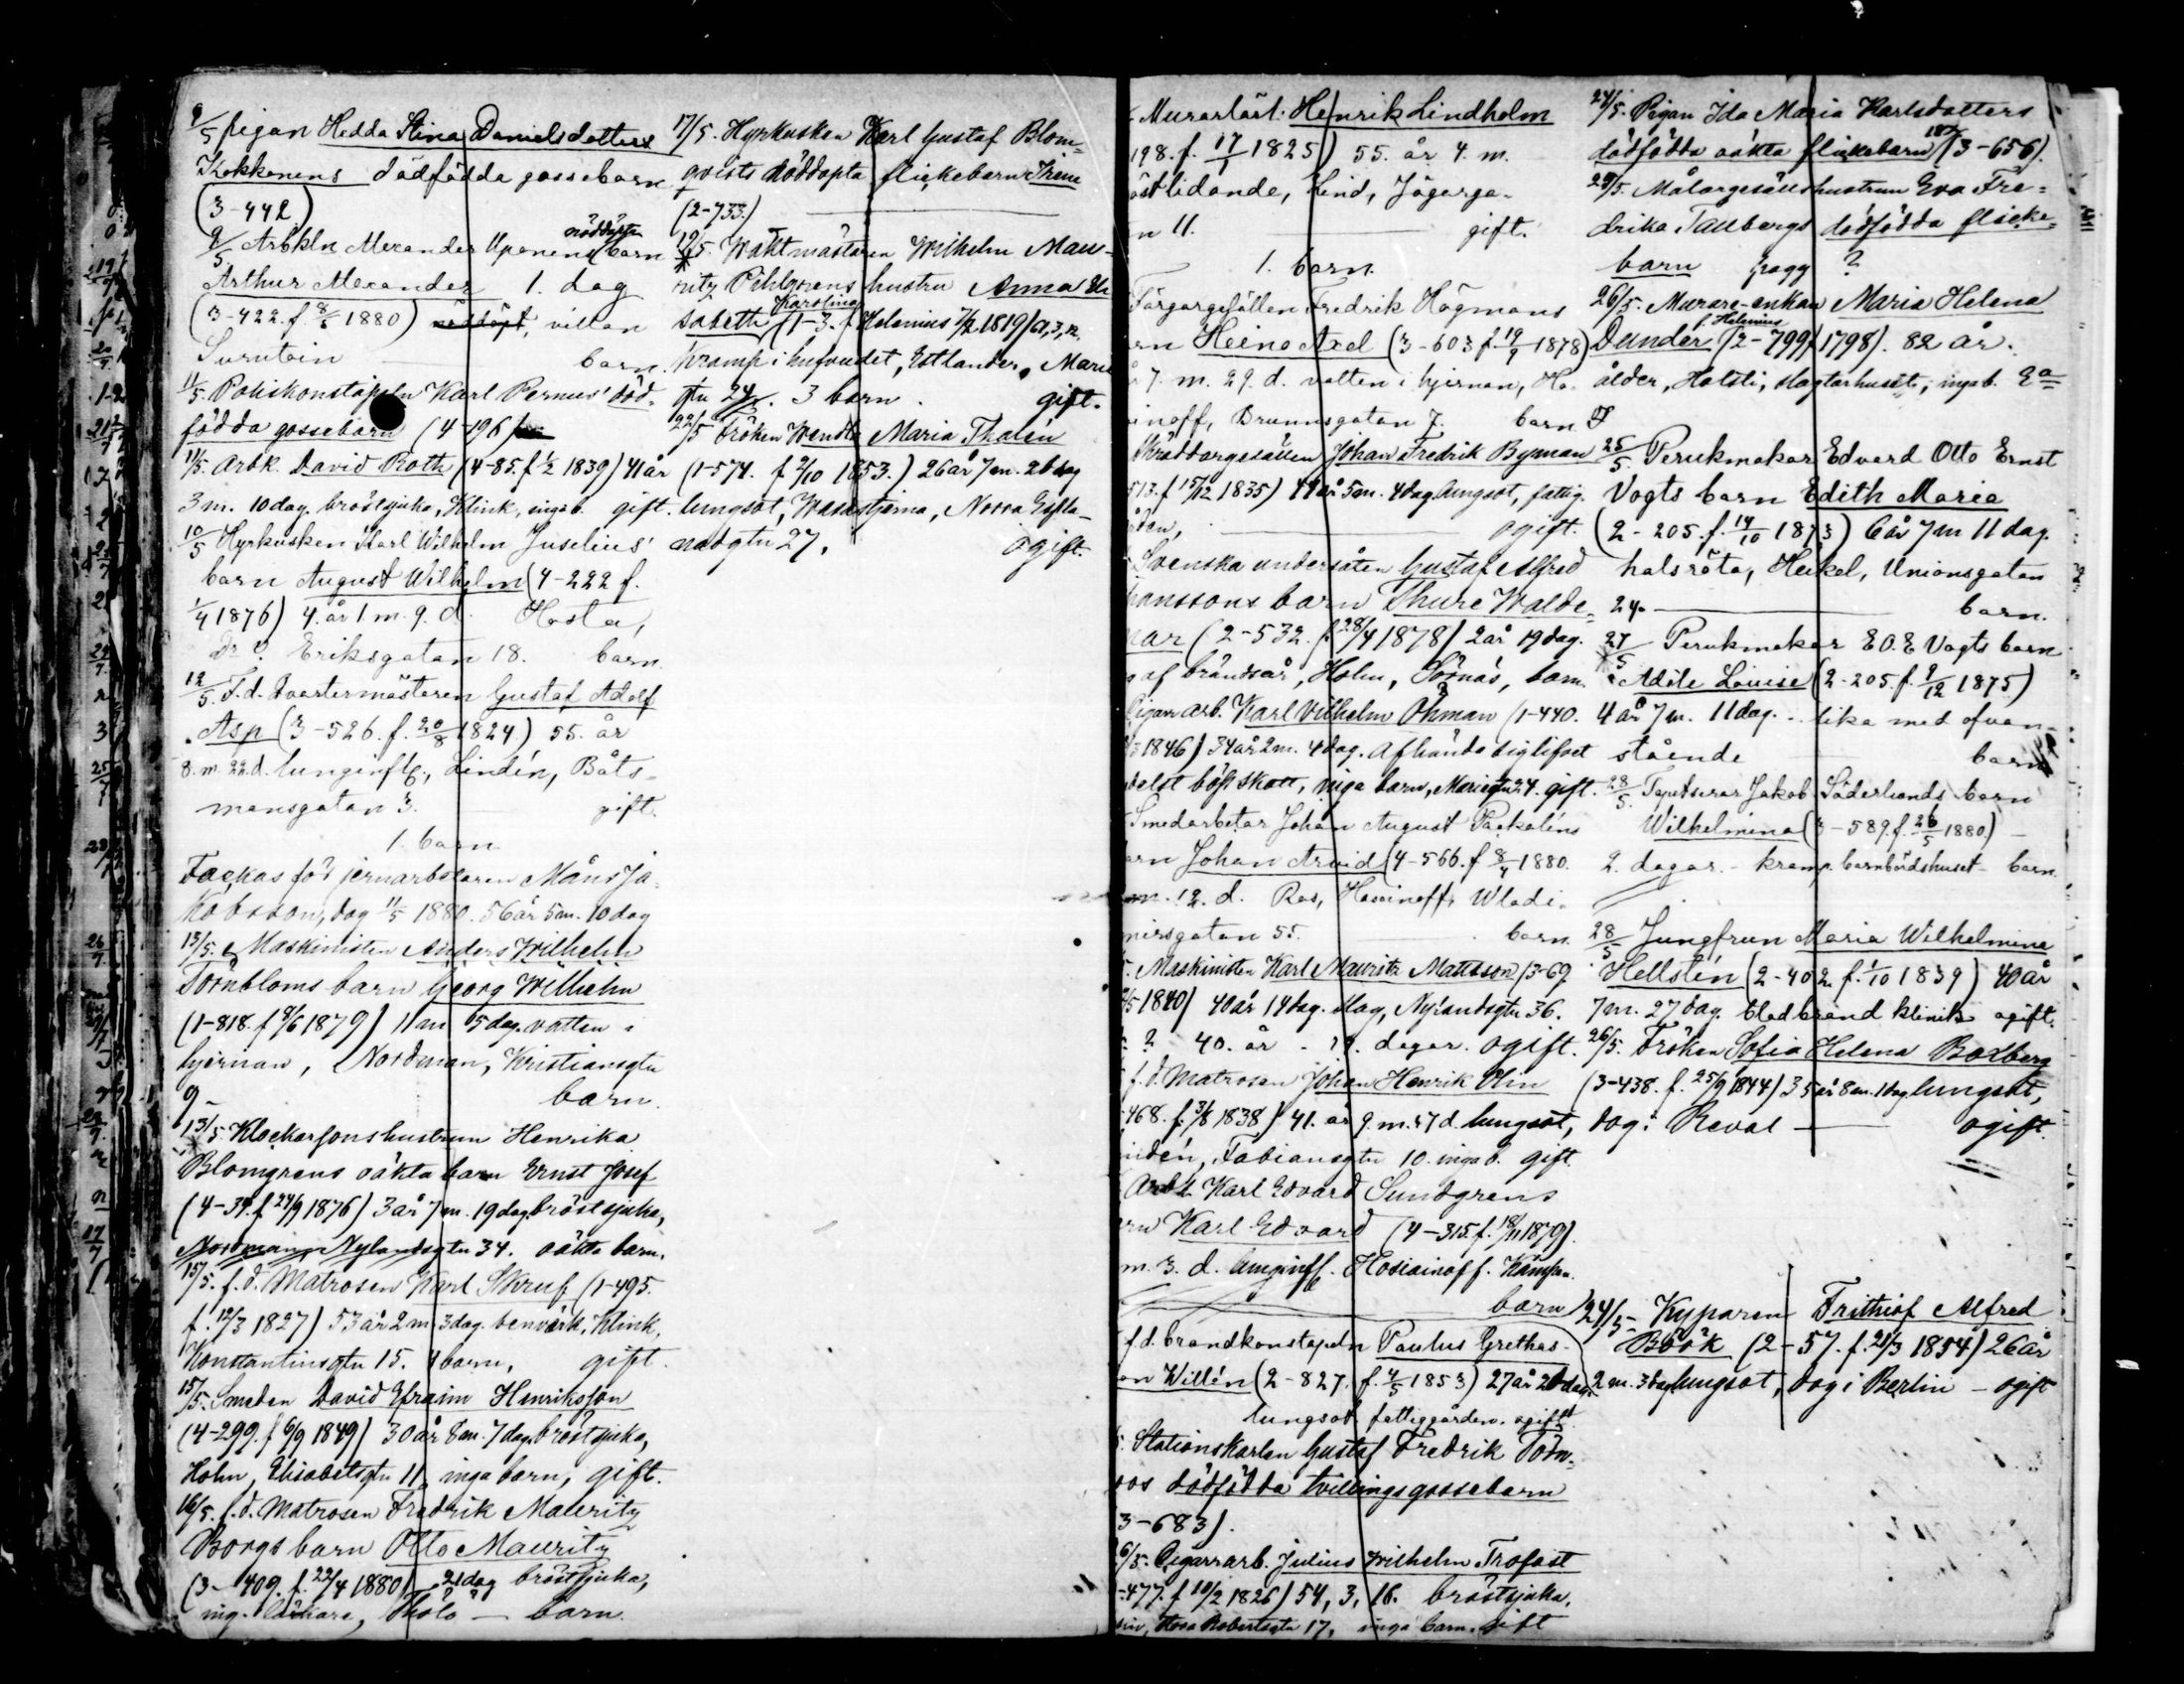 9/5 pigan Hedda Stina Danielsdotters
Kokkonens dödfödda gossebarn
(3-442)
9/5 Arbkln Alexander Uponens nöddöpta barn
Arthur Alexander 1. dag
(3-422. f. 8/5 1880) villan
Surutoin barn.
11/5. Poliskonstapeln Karl Pernus' död-
födda gossebarn (4-196)
11/5. Arbk. David Roth (4-85. f ½ 1839) 41 år
3 m. 10 dag. bröstsjuka, Klink, inga b. gift.
10/5 Hyrkusken Karl Wilhelm Juselius'
barn August Wilhelm (4-222 f.
1/4 1876) 4. år 1. m. 9. d. Hosta,
Dr ?. Eriksgatan 18. barn.
12/5 F. d. Qvartermästaren Gustaf Adolf
Asp (3-526. f. 20/8 1824) 55. år
8. m. 22. d. lunginfl., Lindén, Båts-
mansgatan 3. gift.
1. barn
Fackas för jernarbetaren Måns Ja-
kobsson, dog 11/5 1880. 56 år 5 m. 10 dag
13/5. Maskinisten Anders Wilhelm
Törnbloms barn Georg Wilhelm
(1-818. f 8/6 1879) 11 m 5 dag. vatten i
hjernan, Nordman, Kristiansgtn
9 - barn.
13/5. Klockarsonshustrun Henrika
Blomgrens oäkta barn Ernst Josef
(4-34. f. 24/9 1876) 3 år 7 m. 19 dag. bröstsjuka,
Nordmann Nylandsgtn 34. oäkta barn.
15/5. f. d. Matrosen Karl Skruf (1-495.
f. 12/3 1827) 53 år 2 m. 3 dag. benvärk, Klink,
Konstantinsgtn 15. 4 barn, gift.
15/5. Smeden David Efraim Henriksson
(4-299. f 6/9 1849) 30 år 8 m. 7 dag. bröstsjuka,
Holm, Elisabetsgtn 11, inga barn, gift.
16/5. f. d. Matrosen Fredrik Mauritz
Borgs barn Otto Mauritz
(3-409. f. 22/4 1880) 21 dag bröstsjuka,
ing. läkare, Thölö - barn.
17/5. Hyrkusken Karl Gustaf Blom-
qvists nöddöpta flickebarn Irene
(2-733.)
19/5. Waktmästaren Wilhelm Mau-
ritz Pihlgrens hustru Anna Eli
sabeth Karolina (1-3. f. Helenius 7/2 1819) 61, 3, 12.
kramp i hufvudet, Estlander, Marie
gtn 24. 3 barn. gift.
22/5 Fröken Wendla Maria Thalén
(1-574. f 2/10 1853.) 26 år 7 m. 26 dag
lungsot, Wasastjerna, Norra Espla-
nadgtn 27. ogift.
Murarlärl. Henrik Lindholm
198. f. 17/1 1825) 55. år 4. m.
östlidande, Lind, Jägarga-
n 11. gift.
1. barn.
Färgargesällen Fredrik Högmans
rn Heino Axel (3-603 f. 19/9 1878)
7. m. 29. d. vatten i hjernan, Ho-
inoff, Brunnsgatan 7. barn
Skräddargesällen Johan Fredrik Byman
513. f 15/12 1835) 44 år 5 m. 4 dag. lungsot, fattig-
den, ogift.
Svenska undersåten Gustaf Alfred
hanssons barn Thure Walde-
mar (2-532. f. 28/4 1878) 2 år 19 dag.
af brändsår, Holm, Sörnäs, barn.
Cigarr arb. Karl Vilhelm Öhman (1-440.
/3 1846) 34 år 2 m. 4 dag. Afhände sig lifvet
delst böss skott, inga barn, Mariegtn 24. gift.
Smedarbetar Johan August Packaléns
arn Johan Arvid (4-566. f. 8/4 1880.
m. 12. d. Ros, Hosainoff, Wladi-
mirsgatan 55. barn.
Maskinisten Karl Mauritz Mattsson (3-69.
/5 1840) 40 år 14 dag. slag, Nylandsgtn 36.
? 40. år - 14. dagar. ogift.
f. d. Matrosen Johan Henrik Olin
468. f. 3/8 1838) 41. år 9. m. 17 d. lungsot,
indén, Fabiansgtn 10. inga b. gift.
Arbk. Karl Edvard Sundgrens
rn Karl Edvard (4-315. f. 18/11 1879).
m. 3. d. lunginfl. Hosiainoff. Kampn.
barn
f. d. brandkonstapeln Paulus Grethas-
on Willén (2-827. f. 4/5 1853) 27 år 20 dag.
lungsot fattiggården. ogift.
Stationskarlen Gustaf Fredrik Törn-
ros dödfödda tvillingsgossebarn
3-683).
6/5. Cigarrarb. Julius Wilhelm Trofast
-477. f 10/2 1826) 54, 3, 16. bröstsjuka,
Stora Robertsgtn 17, inga barn. gift
24/5. Pigan Ida Maria Karlsdotters
dödfödda oäkta flickebarn (3-656).
25/5. Målargesällshustrun Eva Fre-
drika Tallbergs dödfödda flicke-
barn ?
26/5. Murare-enkan Maria Helena
Dunder f. Helenius (2-799 f 1798). 82 år.
ålder, Hatsti, slagtarhuset, inga b. Ea
25/5 Perukmakar Edvard Otto Ernst
Vogts barn Edith Maria
(2-205. f. 14/10 1873) 6 år 7 m 11 dag.
halsröta, Heikel, Unionsgatan
24. barn.
27/5 Perukmakar E O. E Vogts barn
Adéle Louise (2-205. f. 9/12 1875)
4 år 7 m. 11 dag. - lika med ofvan-
stående barn
28/5. Tapetserar Jakob Söderlunds barn
Wilhelmina (3-589. f. 26/5 1880) -
2. dagar. - kramp. barnbördshuset - barn.
28/5 Jungfrun Maria Wilhelmina
Hellstén (2-402 f. 1/10 1839) 40 år
7 m. 27 dag. blodbrand klinik ogift.
26/5. Fröken Sofia Helena Boxberg
(3-438. f. 25/9 1844) 35 år 8 m. 1 dag lungsot,
dog i Reval - ogift.
24/5 - Kyparen Frithiof Alfred
Böök (2-57. f. 21/3 1854) 26 år
2 m. 3 dag lungsot, dog i Berlin - ogift